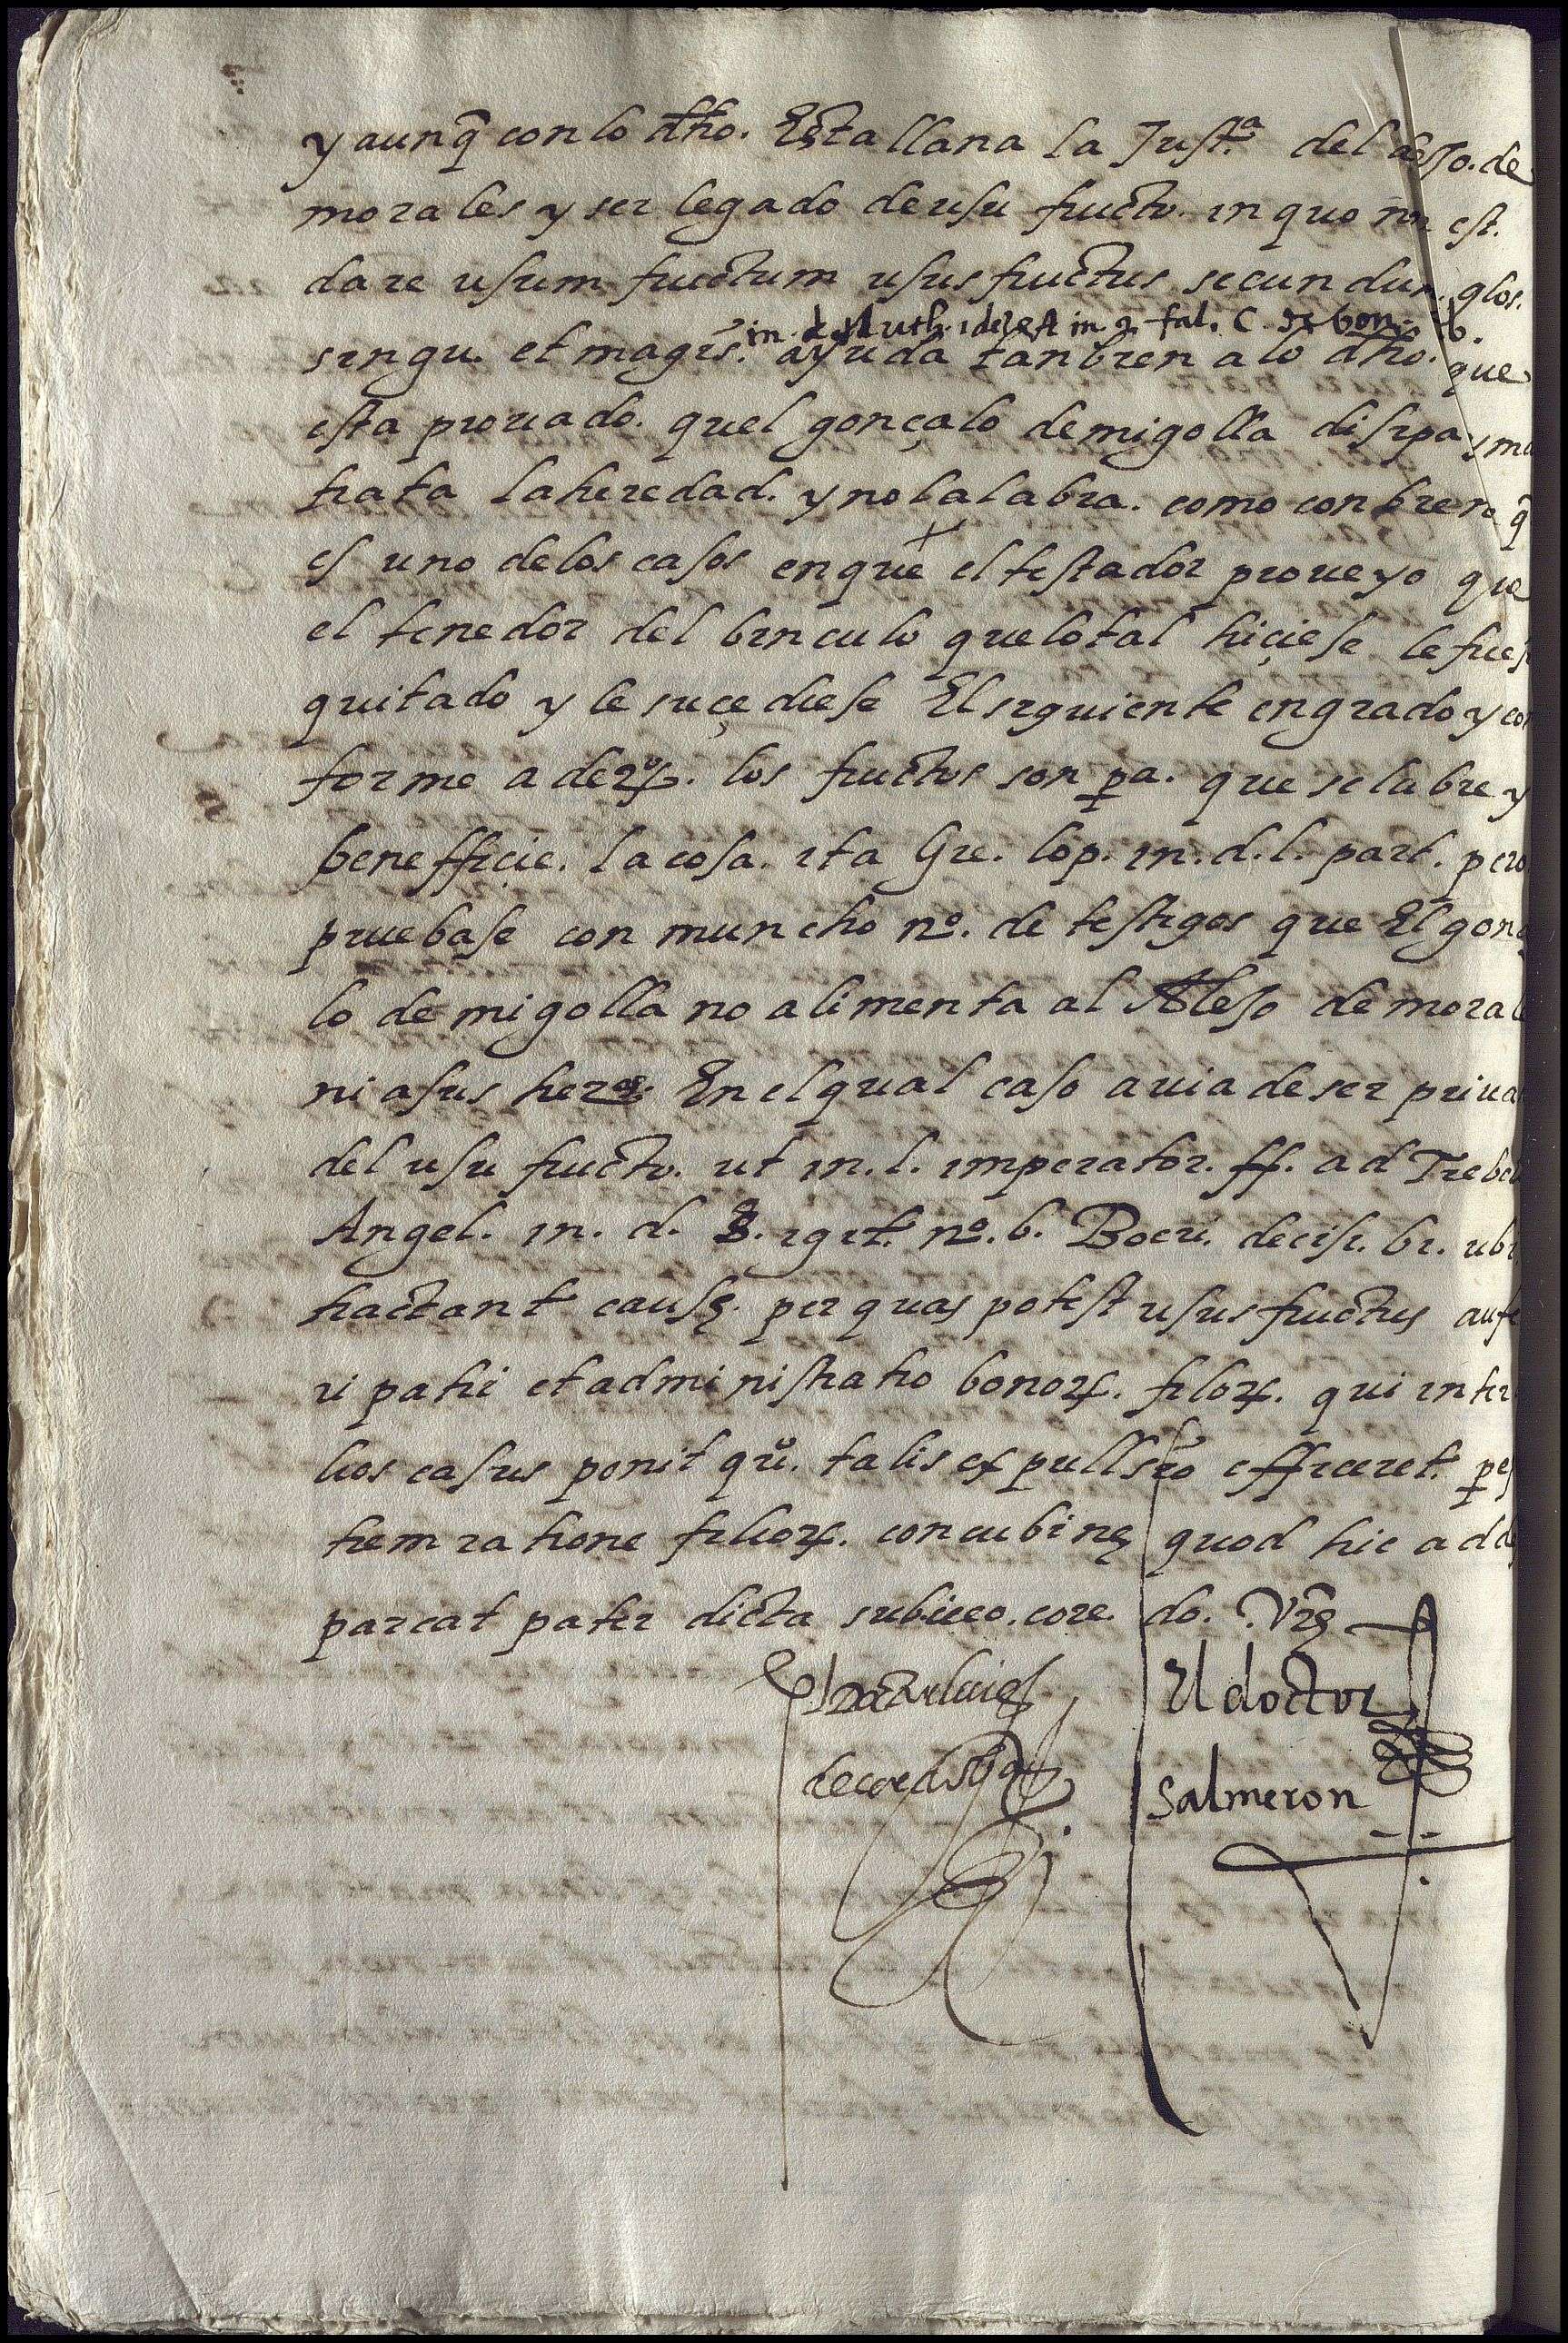 y aunq̃ con lo dho. Esta llana la Just.ª del alesso. de
morales y ser legado de usu fructo. in quo non est.
dare usum fructum ususfructus secundum. glos.
in. d. Auth. idest in 2. fal. C. de bonis lib.
singu. et magis. ayuda tanbien a lo dho. que
esta prouado. quel gonçalo de migolla disipa y ma
trata la heredad. y no la labra. como conbiene q̃
es uno de los casos en que el testador proueyo que
el tenedor del binculo que lo tal hiçiese le fues
quitado y le suçediese El siguiente en grado y con
forme a derº. los fructos son pa. que se labre y
benefficie. la cosa. ita Gre. lop. in. d. l. part. pero
pruebase con muncho nº. de testigos que El gonça
lo de migolla no alimenta al Aleso de moral
ni a sus herºs. En el qual caso auia de ser priua
del usu fructo. ut in. l. imperator. ff. ad Trebel
Angel. in. d. §. igit. nº. 6. Boeri. decisi. 61. ubi
tractant causę. per quas potest ususfructus aufe
ri patri et administratio bonorꝝ. filiorꝝ. qui inter
lios casus ponit qñ. talis expullsio efficeret. pa
trem ratione filiorꝝ. concubinę quod hic add
parcat pater dicta subiceo. core. do. Vrę
El doctor
de cordoba
Salmeron